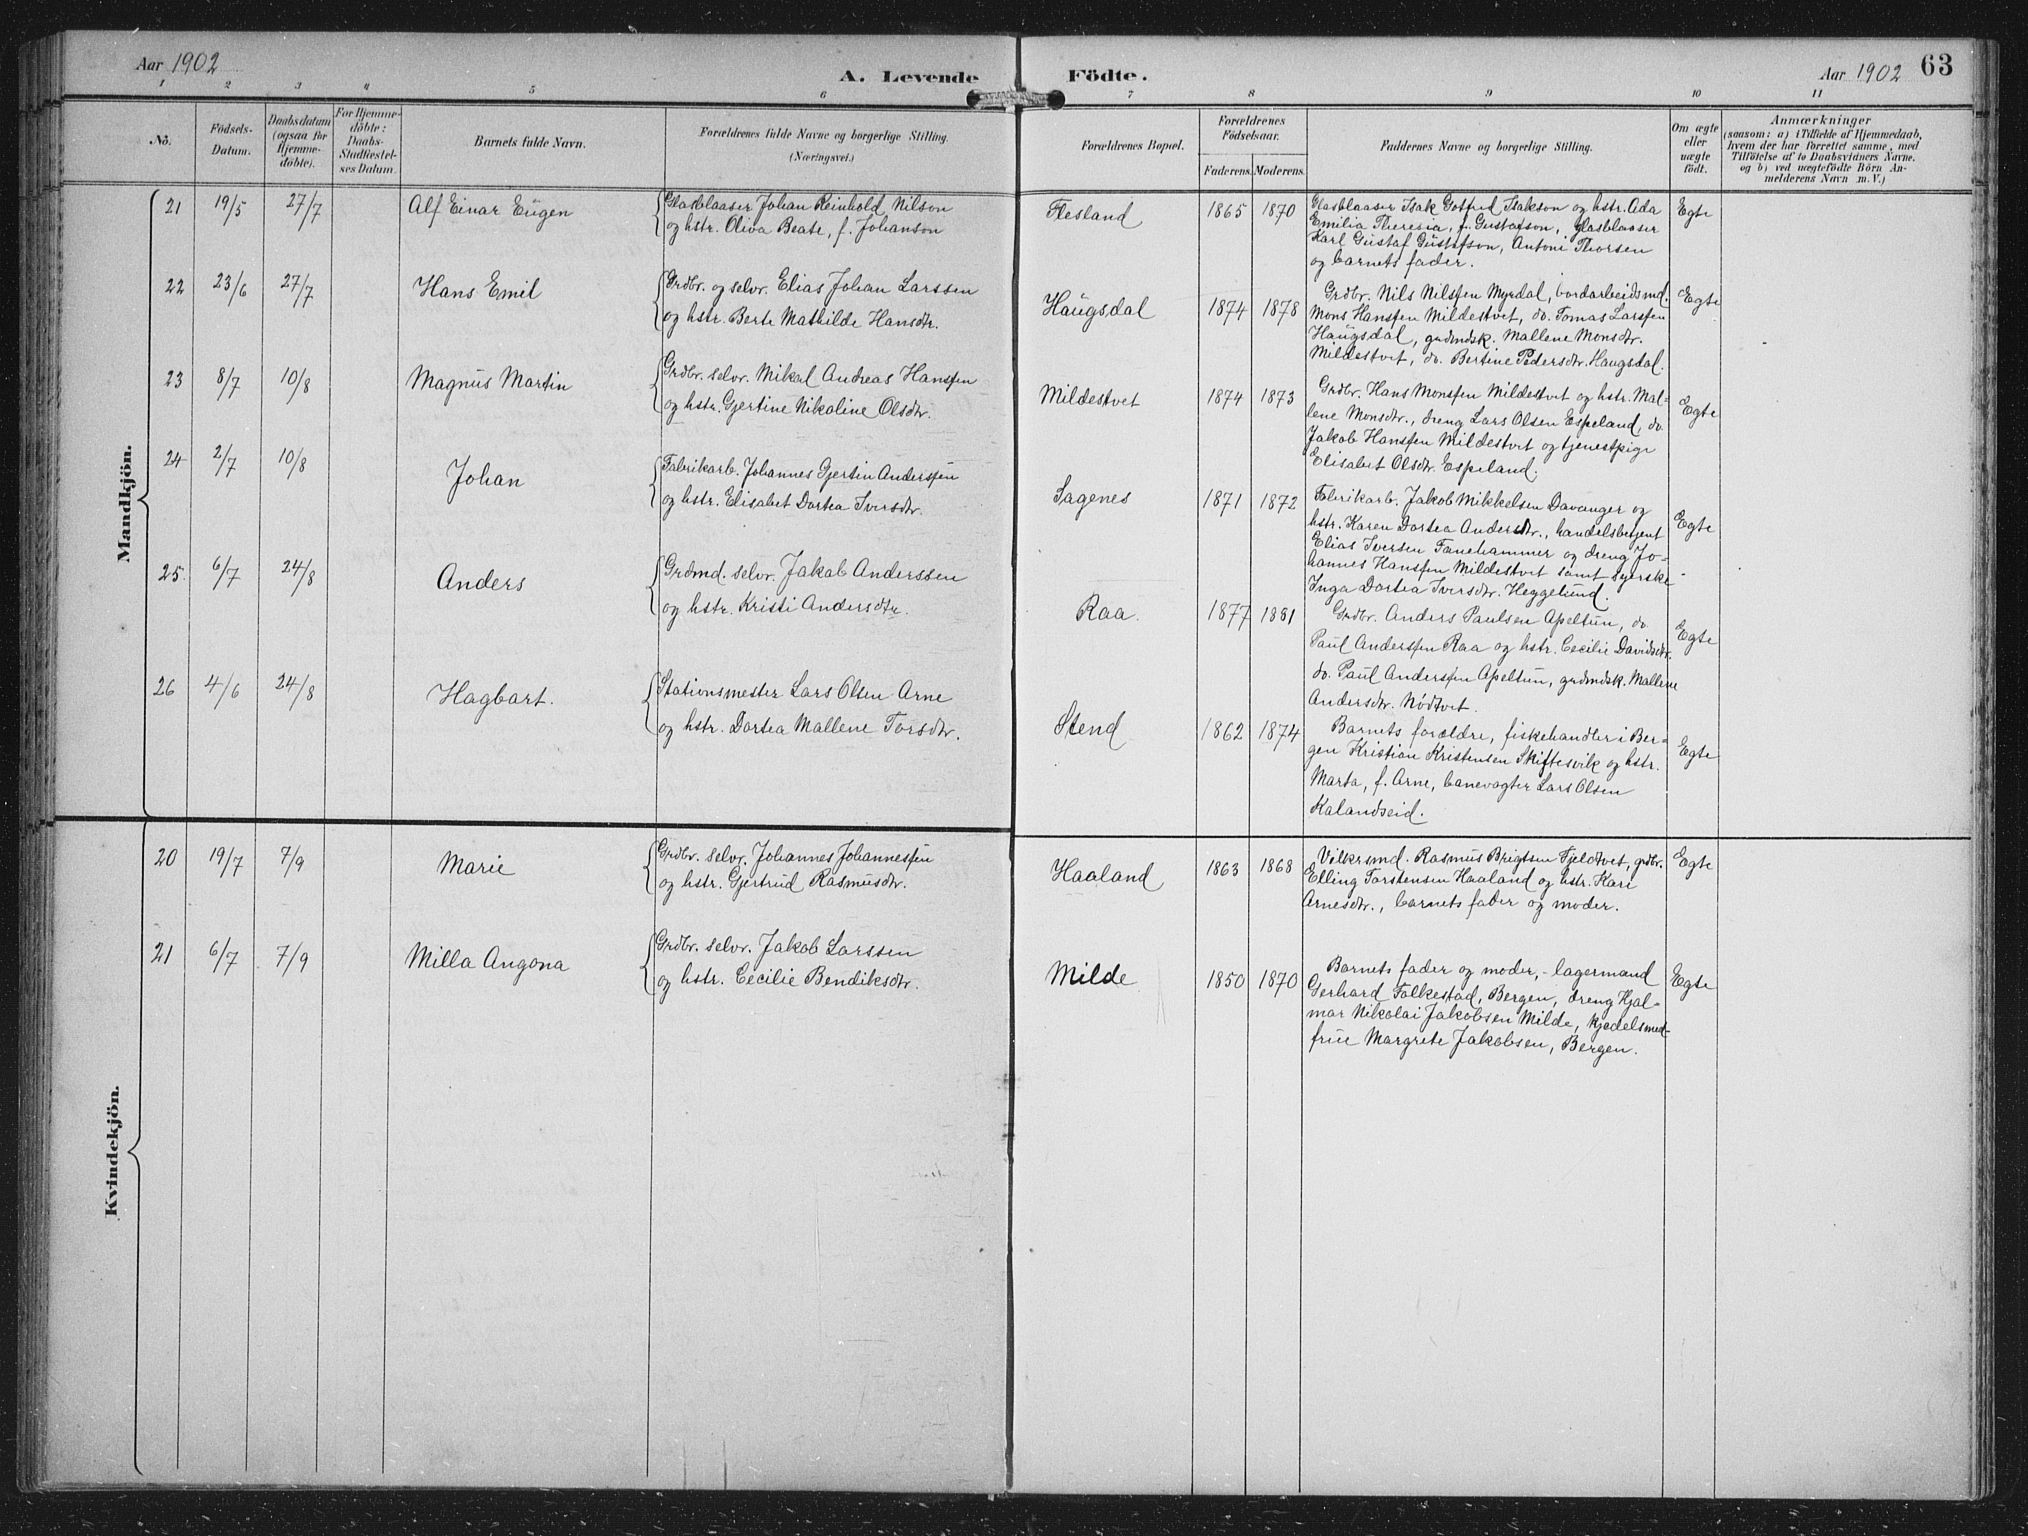 Aar 1902
A. Levende
Födte.
Aar 1902
63
1 2 3 4 5 6 7 8 9 10 11
No.
Födsels-
Datum.
Daabsdatum
(ogsaa for
Hjemme-
döbte).
For Hjemme-
döbte:
Daabs-
Stadfæstel-
ses Datum.
Barnets fulde Navn.
Forældrenes fulde Navne og borgerlige Stilling.
(Næringsvei.)
Forældrenes Bopæl.
Forældrenes
Födselsaar.
Faderens. Moderens.
Faddernes Navne og borgerlige Stilling.
Om ægte
eller
uægte
födt.
Anmærkninger
(saasom: a) i Tilfælde af Hjemmedaab,
hvem der har forrettet samme, med
Tilföielse af to Daabsvidners Navne,
og b) ved uægtefödte Börn An-
melderens Navn m. V.)
Mandkjön.
21 19/5 27/7 Alf Einar Eugen
Glasblaaser Johan Reinhold Nilson
og hstr. Oliva Beate, f. Johanson
Flesland 1865 1870
Glasblaaser Isak Gotfred Isakson og hstr. Ada
Emilia Theresia, f. Gustafson, Glasblaaser
Karl Gustaf Gustafson, Antoni Thorsen
og barnets fader.
Egte
22 23/6 27/7 Hans Emil
Grdbr. og selvr. Elias Johan Larssen
og hstr. Berte Mathilde Hansdtr.
Haugsdal 1874 1878
Grdbr. Nils Nilssen Myrdal, bordarbeidsmd.
Mons Hanssen Mildestvet, do. Tomas Larssen
Haugsdal, grdmdsk. Mallene Monsdtr.
Mildestvet, do. Bertine Pedersdtr. Haugsdal.
Egte
23 8/7 10/8 Magnus Martin
Grdbr. selvr. Mikal Andreas Hanssen
og hstr. Gjertine Nikoline Olsdtr.
Mildestvet 1874 1873
Grdbr. Hans Monssen Mildestvet og hstr. Mal-
lene Monsdtr., dreng Lars Olsen Espeland, do.
Jakob Hanssen Mildestvet og tjenestpige
Elisabet Olsdtr. Espeland.
Egte
24 2/7 10/8 Johan
Fabrikarb. Johannes Gjertin Anderssen
og hstr. Elisabet Dortea Iversdtr.
Sagenes 1871 1872
Fabrikarb. Jakob Mikkelsen Davanger og
hstr. Karen Dortea Andersdtr., handelsbetjent
Elias Iversen Fanehammer og dreng Jo-
hannes Hanssen Mildestvet samt syerske
Inga Dortea Iversdtr. Heggelund.
Egte
25. 6/7 24/8 Anders
Grdmd. selvr. Jakob Anderssen
og hstr. Kristi Andersdtr.
Raa. 1877 1881
Grdbr. Anders Paulsen Apeltun, do.
Paul Anderssen Raa og hstr. Cecilie Davidsdtr.
do. Paul Anderssen Apeltun, grdmdsk. Mallene
Andersdtr. Nödtvet.
Egte
26 4/6 24/8 Hagbart.
Stationsmester Lars Olsen Arne
og hstr. Dortea Mallene Torsdtr.
Stend 1862 1874
Barnets forældre, fiskehandler i Ber-
gen Kristian Kristensen Skiftesvik og hstr.
Marta, f. Arne, banevogter Lars Olsen
Kalandseid.
Egte
Kvindekjön.
20 19/7 7/9 Marie
Grdbr. selvr. Johannes Johannessen
og hstr. Gjertrud Rasmusdtr.
Haaland 1863 1868
Vilkrsmd. Rasmus Brigtsen Fjeldtvet, grdbr.
Elling Torstensen Haaland og hstr. Kari
Arnesdtr., barnets fader og moder.
Egte
21 6/7 7/9 Milla Angona
Grdbr. selvr. Jakob Larssen
og hstr. Cecilie Bendiksdtr.
Milde 1850 1870
Barnets fader og moder, lagermand
Gerhard Falkestad, Bergen, dreng Hjal-
mar Nikolai Jakobsen Milde, kjedelsmed-
frue Margrete Jakobsen, Bergen.
Egte